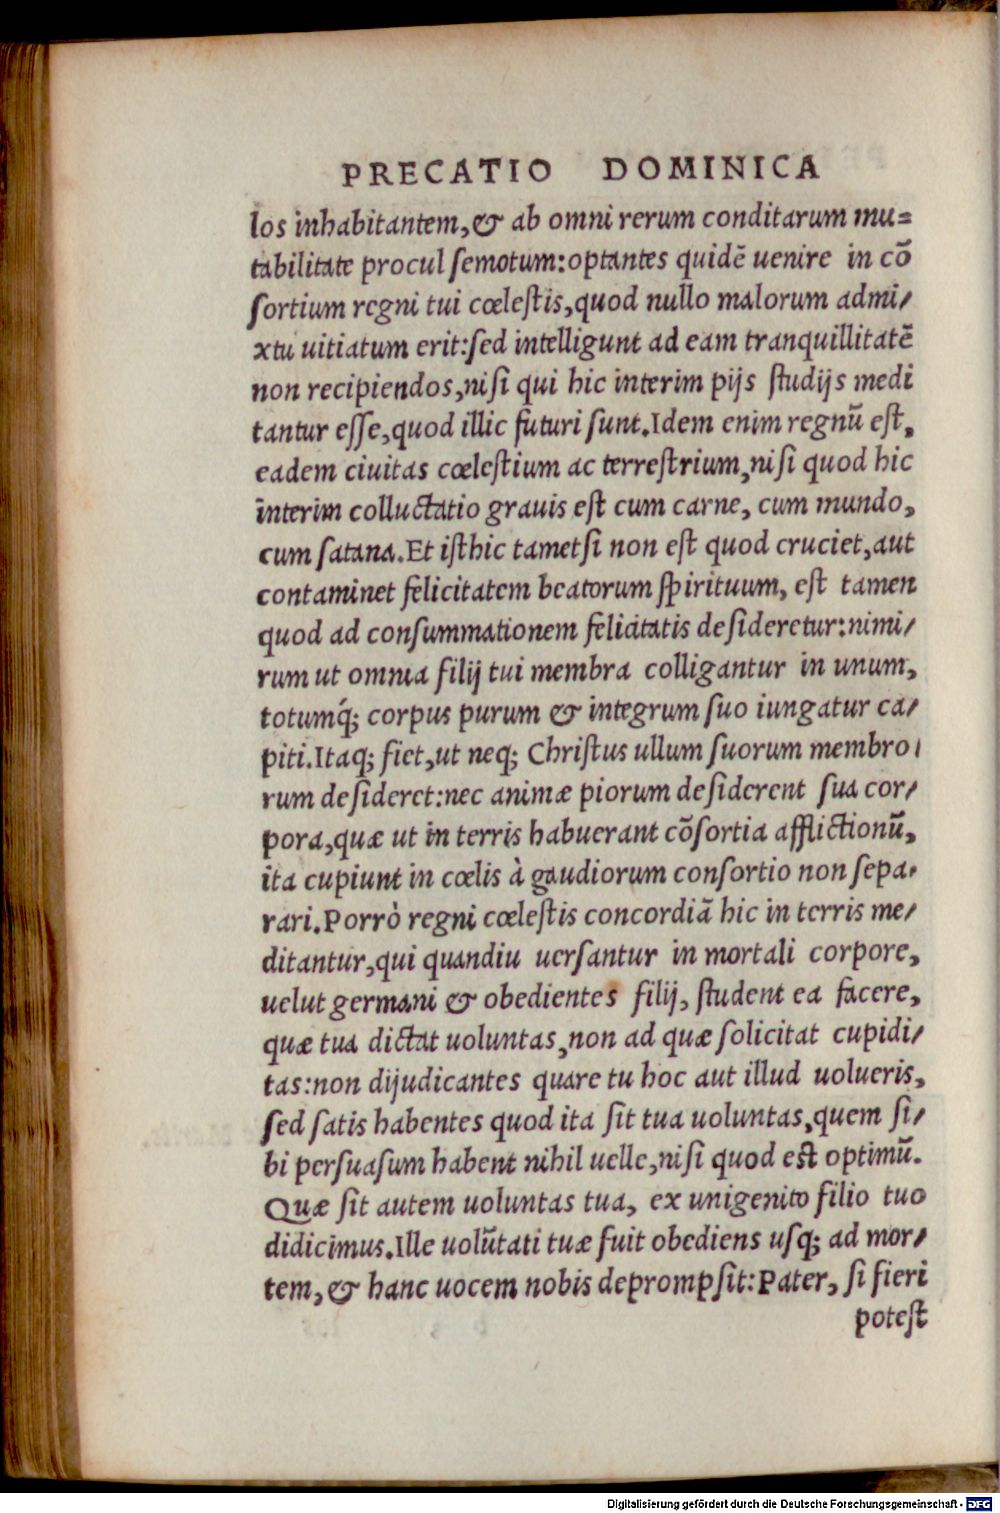 PRECATIO DOMINICA
los inhabitantem,& ab omni rerum conditarum mu=
tabilitate procul ſemotum:optantes quidē uenire in cō
ſortium regni tui cœleſtis,quod nullo malorum admi/
xtu uitiatum erit:ſed intelligunt ad eam tranquillitatē
non recipiendos,niſi qui hic interim pijs ſtudijs medi
tantur eſſe,quod illic futuri ſunt.Idem enim regnū eſt,
eadem ciuitas cœleſtium ac terreſtrium,niſi quod hic
interim colluctatio grauis eſt cum carne, cum mundo,
cum ſatana.Et iſthic tametſi non eſt quod cruciet,aut
contaminet felicitatem beatorum ſpirituum, eſt tamen
quod ad conſummationem felicitatis deſideretur:nimi/
rum ut omnia filij tui membra colligantur in unum,
totumq́; corpus purum & integrum ſuo iungatur ca/
piti.Itaq; fiet,ut neq; Chriſtus ullum ſuorum membro/
rum deſideret:nec animæ piorum deſiderent ſua cor/
pora,quæ ut in terris habuerant cōſortia afflictionū,
ita cupiunt in cœlis à gaudiorum conſortio non ſepa/
rari.Porrò regni cœleſtis concordiā hic in terris me/
ditantur,qui quandiu uerſantur in mortali corpore,
uelut germani & obedientes filij, ſtudent ea facere,
quæ tua dictat uoluntas,non ad quæ ſolicitat cupidi/
tas:non dijudicantes quare tu hoc aut illud uolueris,
ſed ſatis habentes quod ita ſit tua uoluntas,quem ſi/
bi perſuaſum habent nihil uelle,niſi quod eſt optimū.
Quæ ſit autem uoluntas tua, ex unigenito filio tuo
didicimus.Ille uolūtati tuæ fuit obediens uſq; ad mor/
tem,& hanc uocem nobis depromp­ſit:Pater, ſi fieri
poteſt
Digitalisierung gefördert durch die Deutsche Forschungsgemeinschaft - DFG